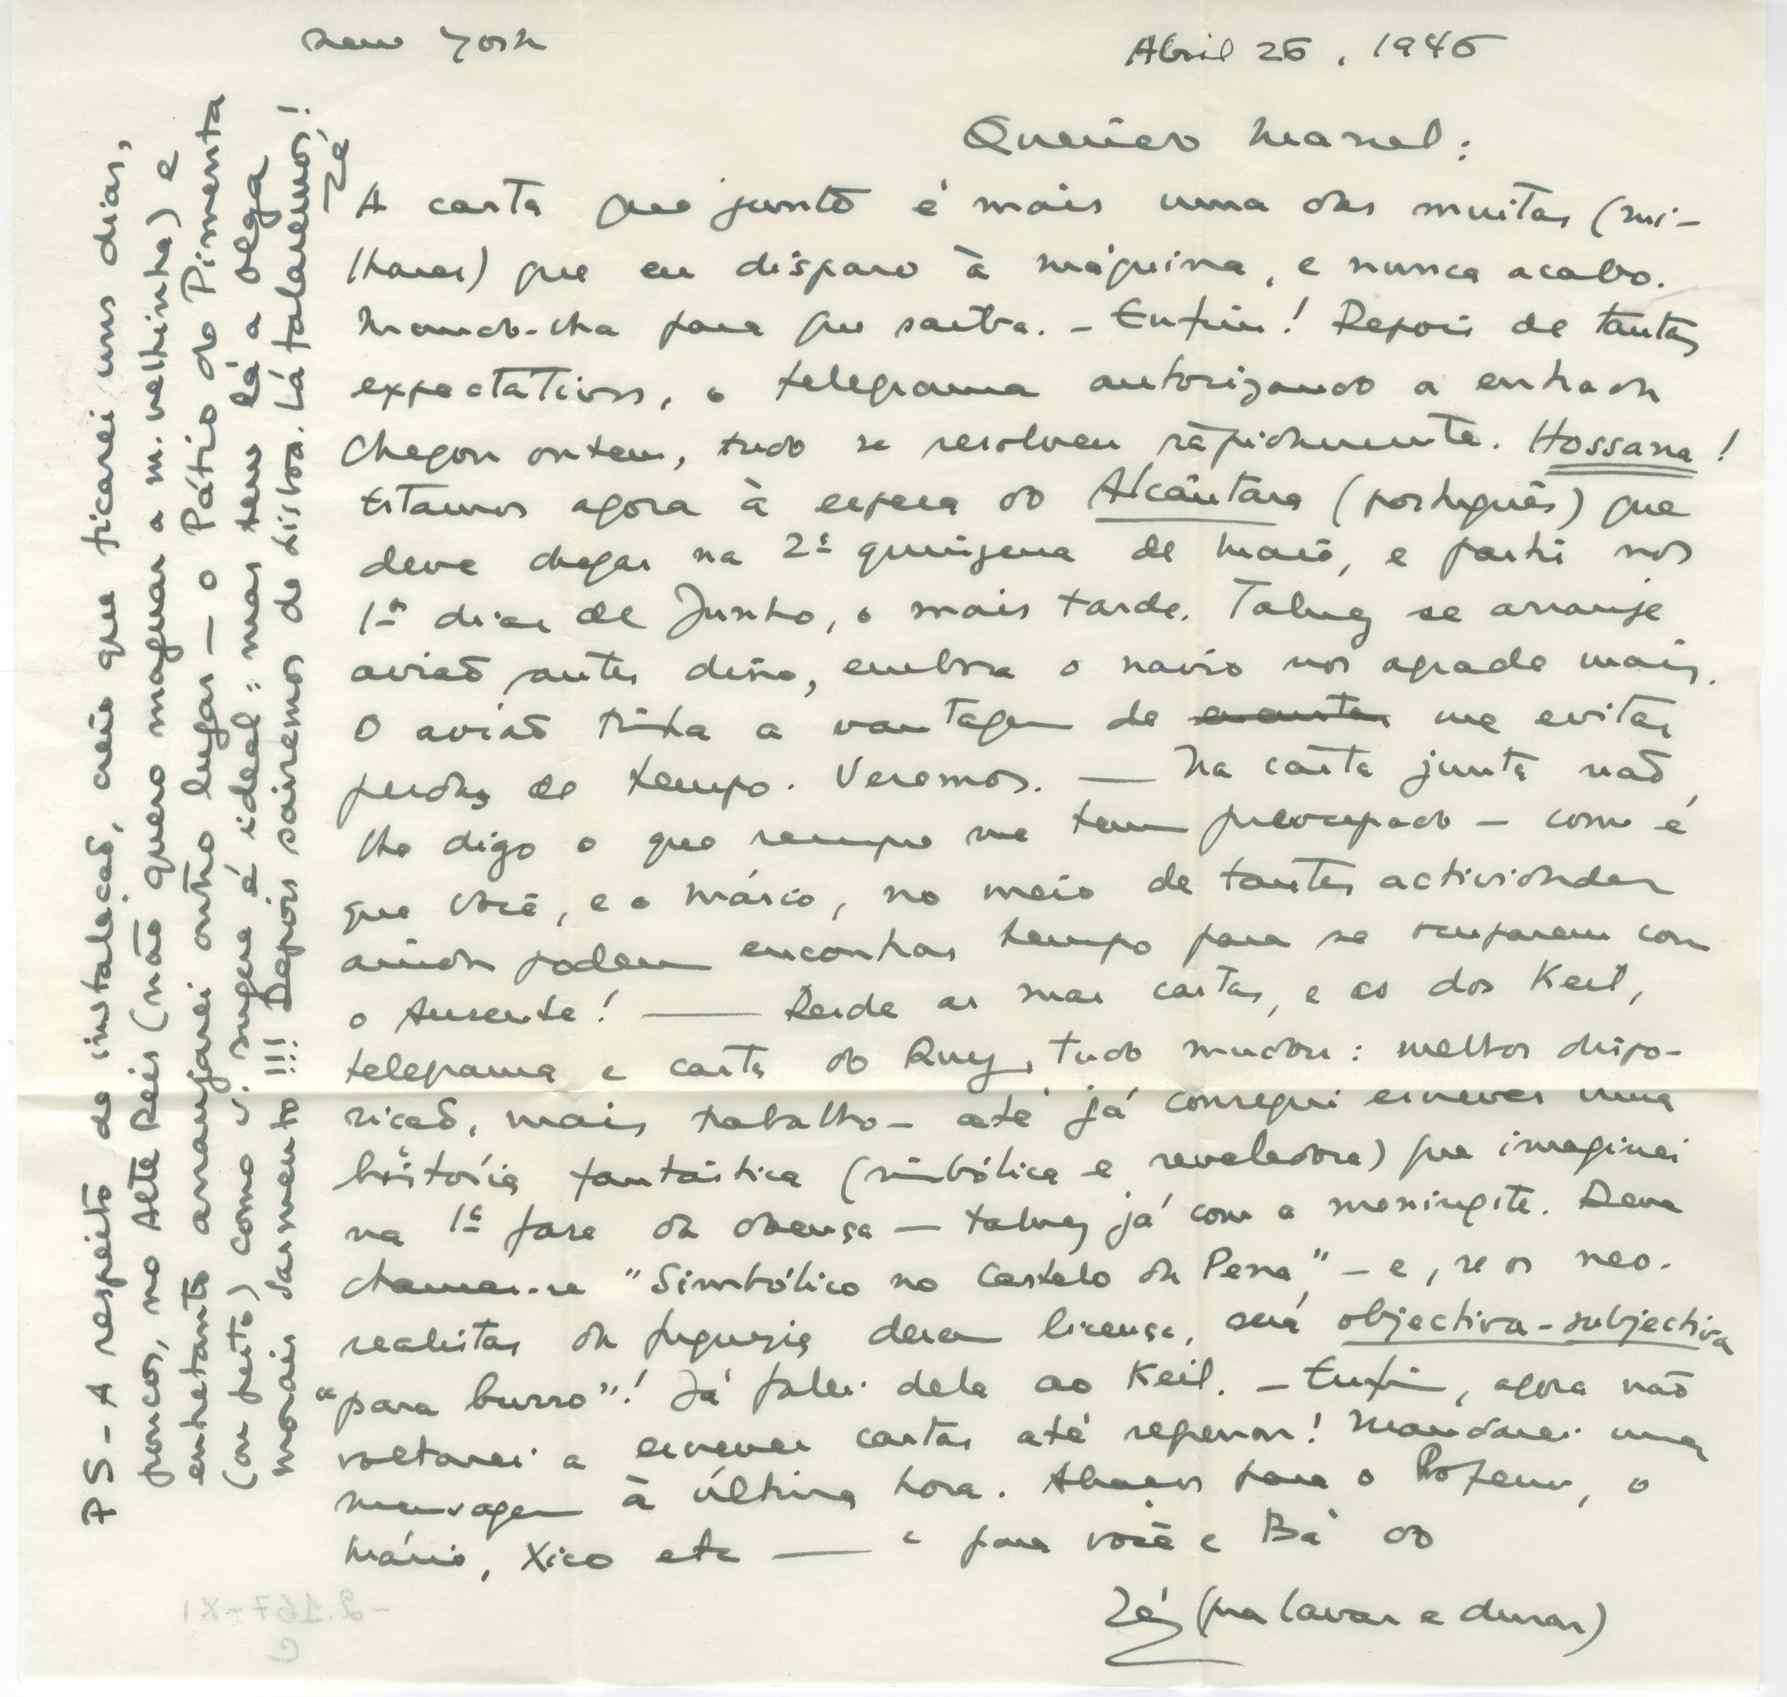 New York
Abril 26, 1946
Querido Manel:
A carta que junto é mais uma das muitas (mi-
lhares) que eu disparo à máquina, e nunca acabo.
Mando-lha para que saiba. - Enfim! Depois de tantas
expectativas, o telegrama autorizando a entrada
chegou ontem, tudo se resolveu ràpidamente. Hossana!
Estamos agora à espera do Alcântara (português) que
deve chegar na 2ª quinzena de Maio, e partir nos
1ºs dias de Junho, o mais tarde. Talvez se arranje
avião antes disso, embora o navio nos agrade mais.
O avião tinha a vantagem de me evitar
perdas de tempo. Veremos. — Na carta junta não
lhe digo o que sempre me tem preocupado - como é
que Você, e o Mário, no meio de tantas actividades
ainda podem encontrar tempo para se ocuparem com
o Ausente! — Desde as suas cartas, e as dos Keil,
telegrama e carta do Ruy, tudo mudou: melhor dispo-
sição, mais trabalho - até já consegui escrever uma
história fantástica (simbólica e reveladora) que imaginei
na 1ª fase da doença — talvez já com a meningite. Deve
chamar-se "Simbólico no Castelo da Pena" - e, se os neo-
realistas da freguesia derem licença, será objectiva-subjectiva
"para burro"! Já falei dela ao Keil. - Enfim, agora não
voltarei a escrever cartas até regressar! Mandarei uma
mensagem à última hora. Abraços para o Professor, o
Mário, Xico etc — e para você e Bá do
Zé (pra lavar e durar)
PS - A respeito de instalação, creio que ficarei uns dias,
poucos, no Alto Reis (não quero magoar a m. velhinha) e
entretanto arranjarei outro lugar — o Pátio do Pimenta
(ou perto) como v. sugere é ideal: mas tem lá a Olga
Morais Sarmento!!! Depois sairemos de Lisboa. Lá falaremos!
Zé